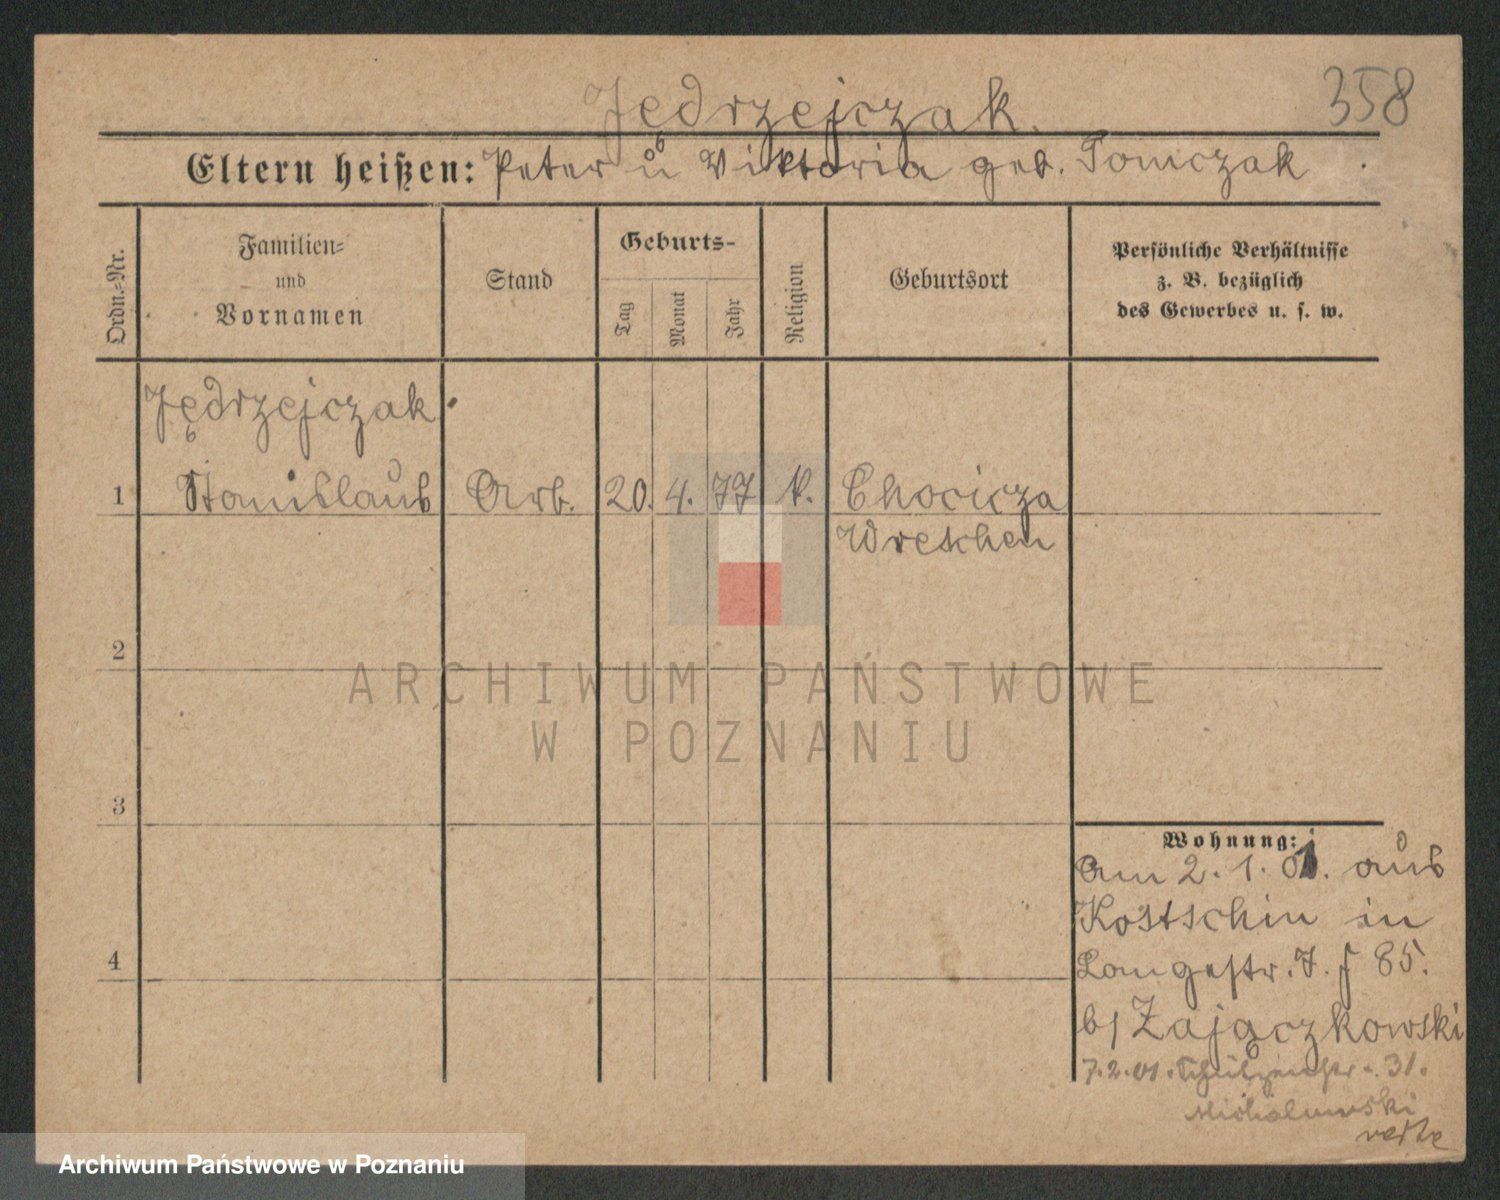 Jędrzejczak.
358
Eltern heißen: Peter u Viktoria geb. Tomczak
Ordn.-Nr.
Familien- und Vornamen
Stand
Geburts-
Tag
Monat
Jahr
Religion
Geburtsort
Persönliche Verhältnisse
z. B. bezüglich
des Gewerbes u. s. w.
Jędrzejczak
1 Stanislaus Arb. 20. 4. 77 k. Chocicza
Wreschen
2
3
4
Wohnung:
Am 2. 1. 01. aus
Kostschin in
Langestr. 7. J 85.
b/ Zajączkowski
7.2.01. Schützenstr. 31.
verte
ARCHIWUM PAŃSTWOWE
W POZNANIU
Archiwum Państwowe w Poznaniu